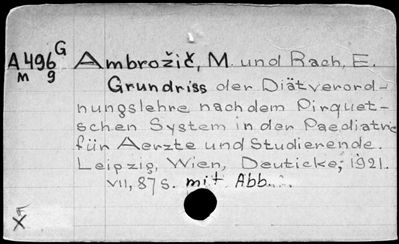 A 496 G Ambrožič, M. und Rach, E.
m 9 Grundriss der Diätverord-
nungslehre nach dem Pirquet-
schen System in der Paediatrie
für Aerzte und Studierende.
Leipzig, Wien, Deuticke, 1921.
VII, 87 S. mit Abb.
x